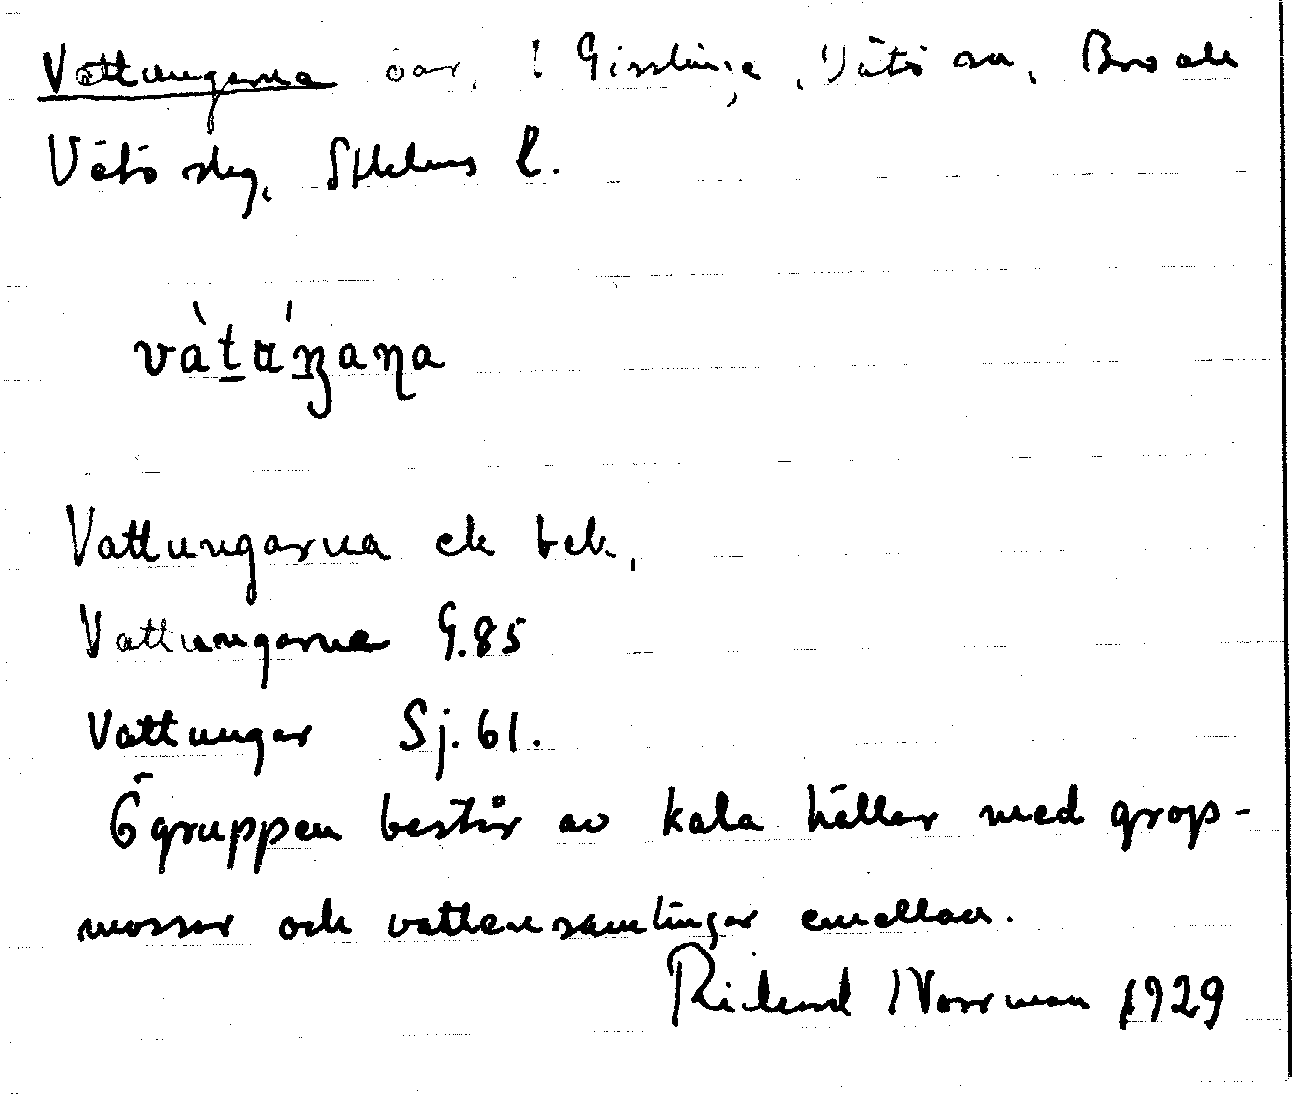 Vattungarna öar, i Gisslinge, Vätö sn, Bro och
Vätö skg, Sthlms l.
và̀ṯα´ŋaṇa
Vattungarna ek bek.
Vattungarna G.85
Vattungar Sj. 61.
Ögruppen består av kala hällar med grop-
mossor och vattensamlingar emellan.
Rickard Norrman 1929